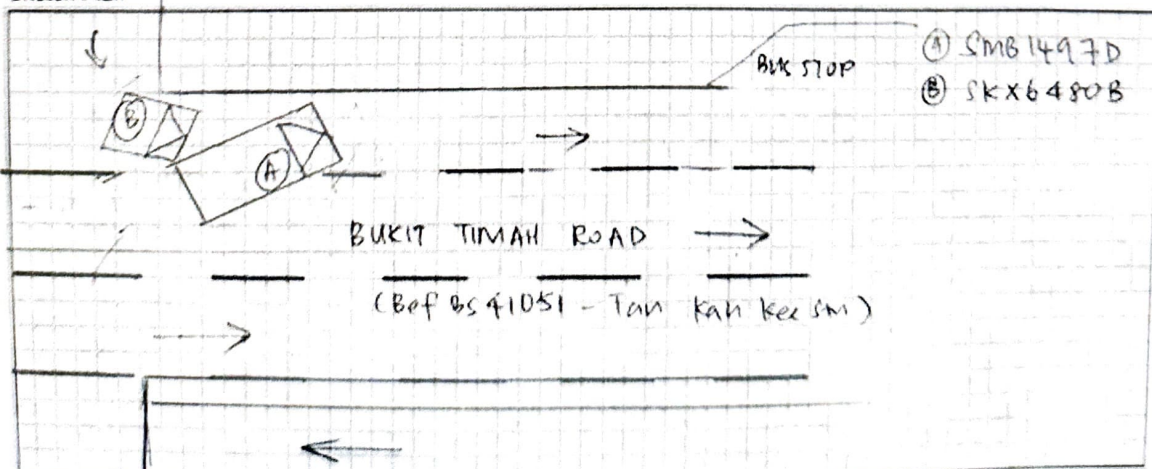 BUS STOP
Ⓐ SMB1497D
Ⓑ SKX6480B
Ⓑ
Ⓐ
BUKIT TIMAH ROAD
(Bef BS 41051 - Tan Kah Kee Stn)